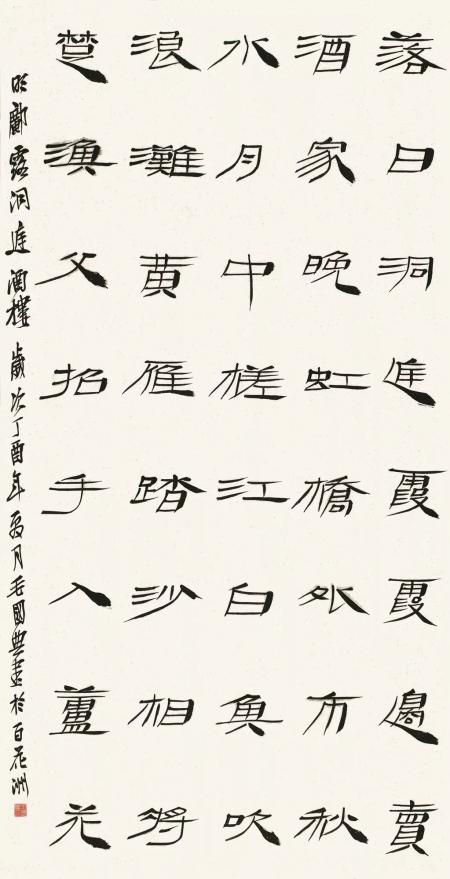 落日洞庭霞霞邊賣
酒家晚虹橋外市秋
水月中槎江白魚吹
浪灘黄雁踏沙相將
楚漁父招手入蘆花
明鄺露洞庭酒樓 歲次丁酉年 月毛國典書於百花洲